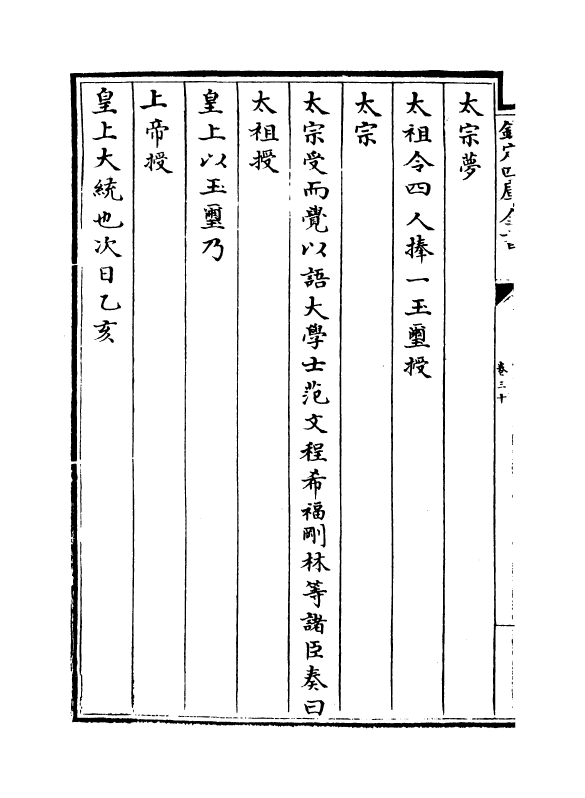 欽定四庫全書
卷三十
太宗夢
太祖令四人捧一玉璽授
太宗
太宗受而覺以語大學士范文程希福剛林等諸臣奏曰
太祖授
皇上以玉璽乃
上帝授
皇上大統也次日乙亥